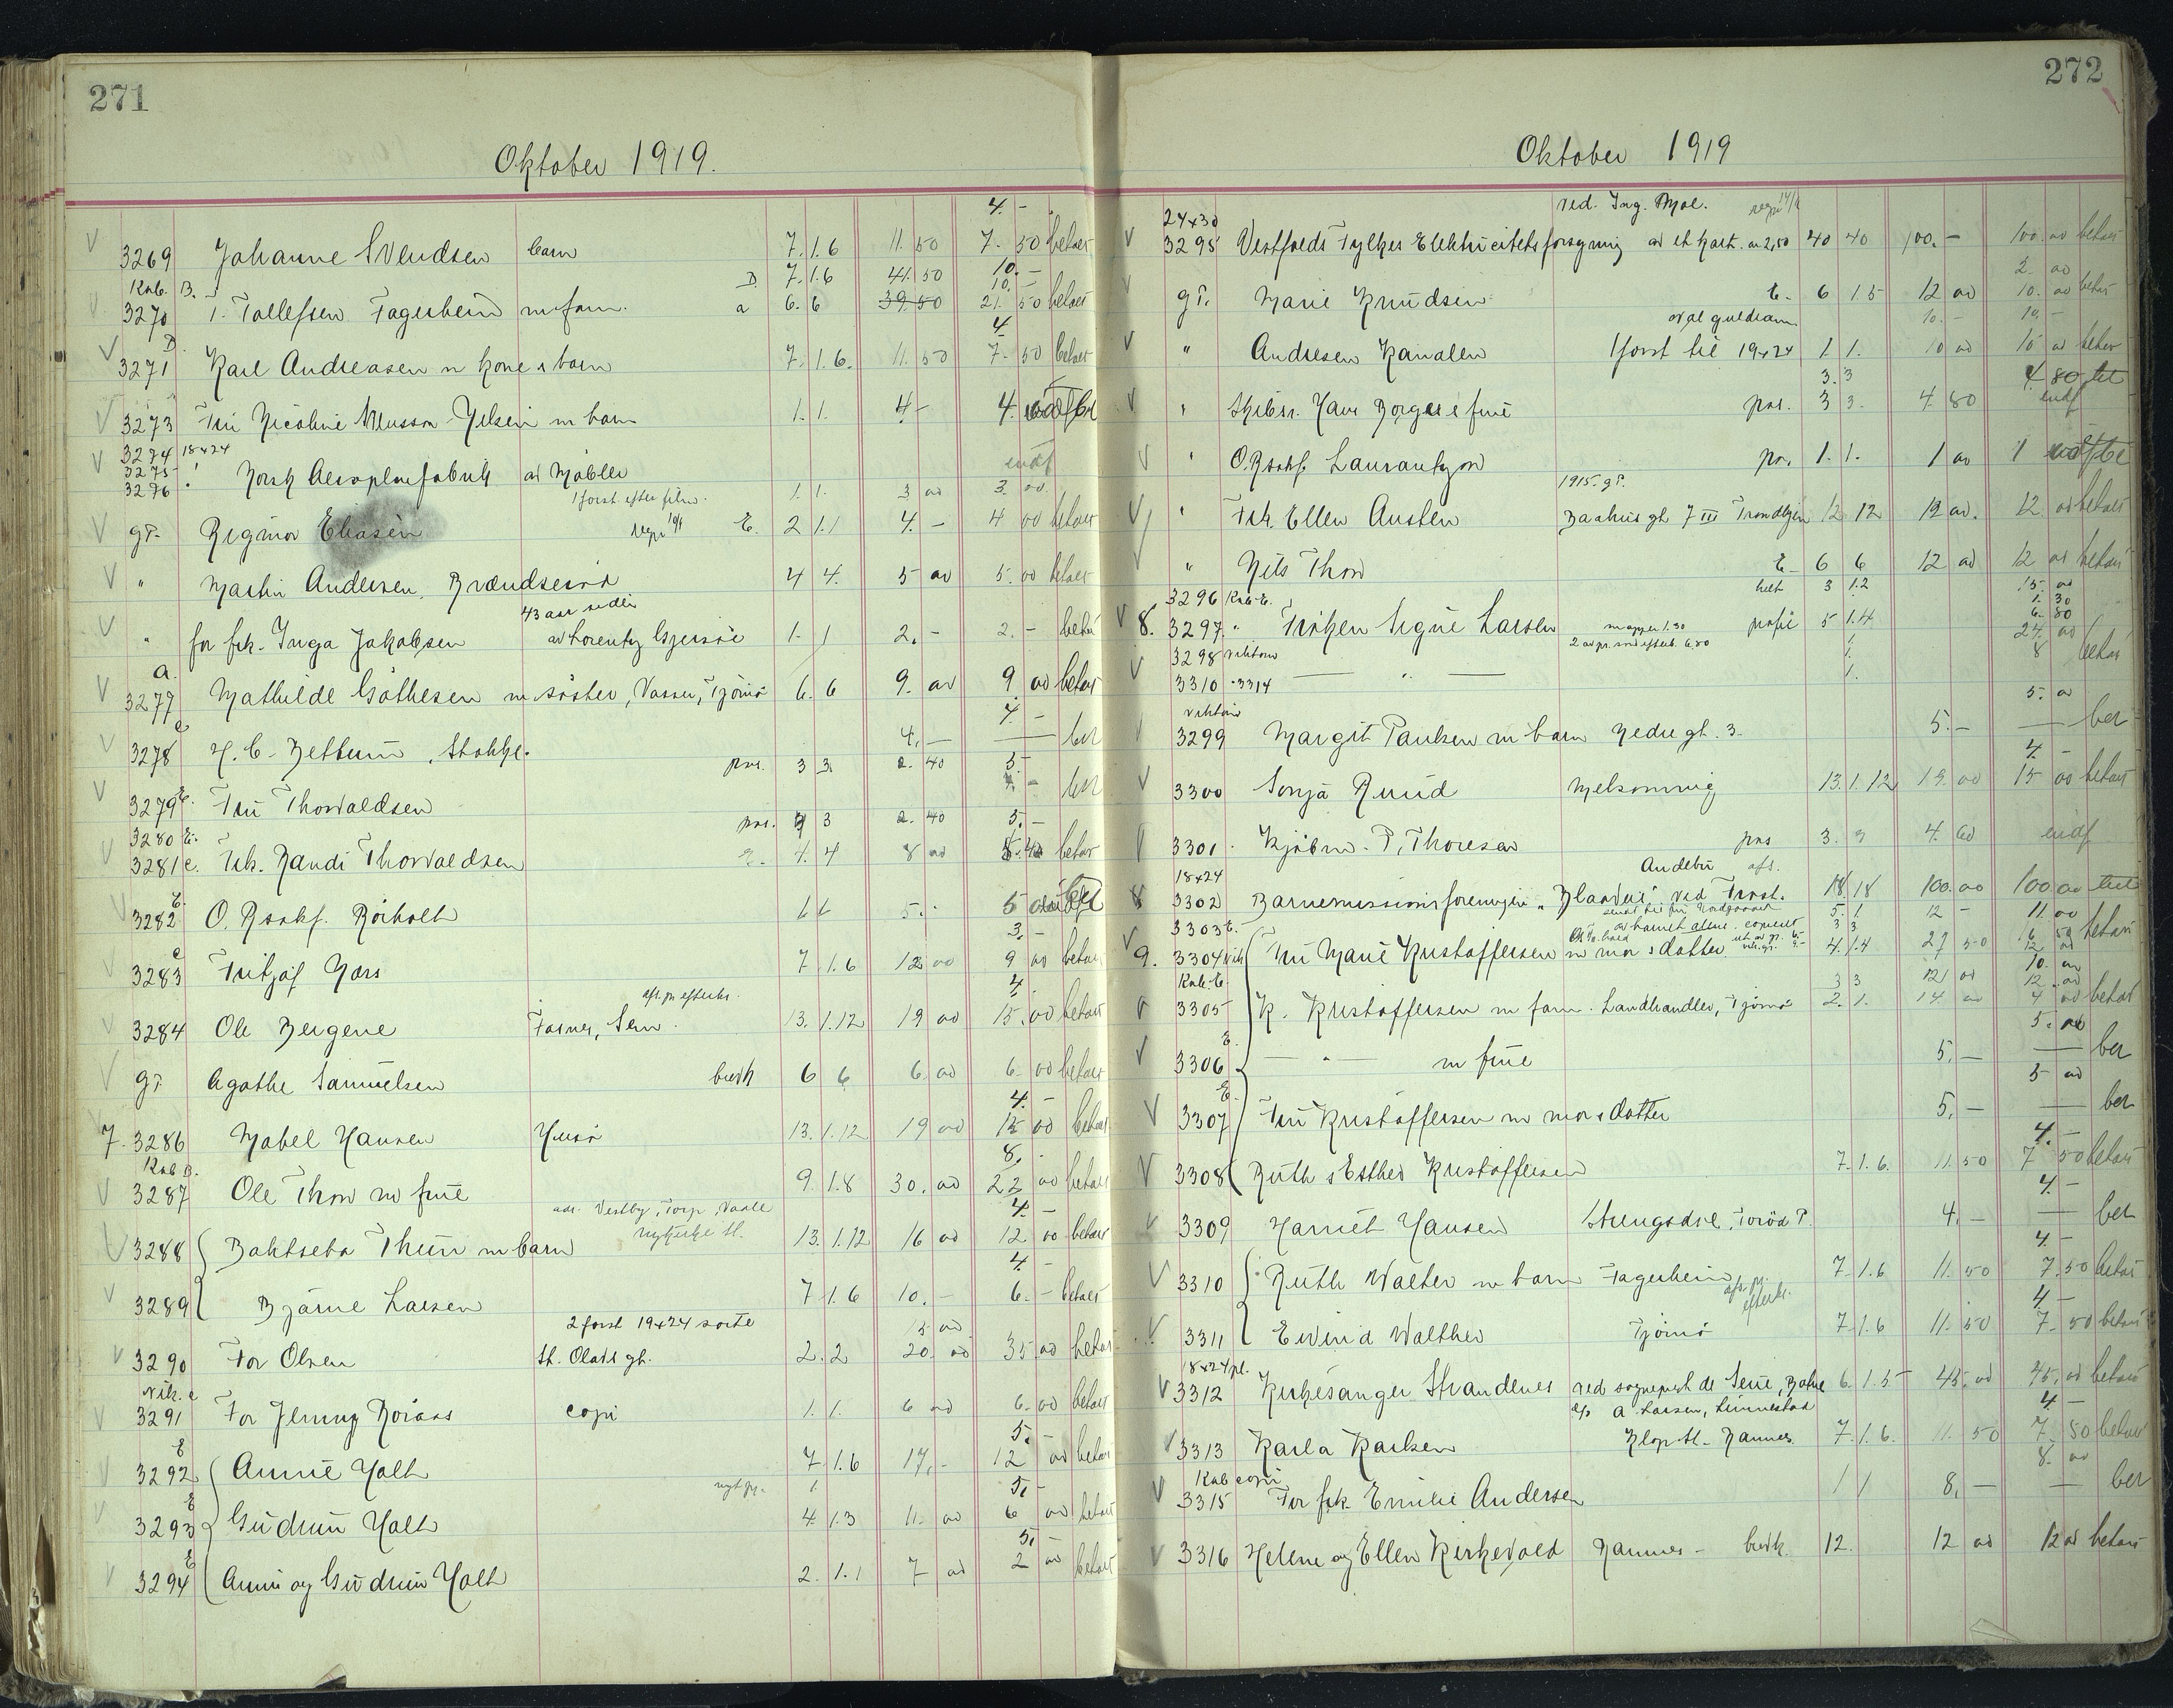 271
Oktober 1919.
4. -
3269 Johanne Svendsen barn 7. 1.6 11. 50 7. 50 betalt
Kab. B. D. 7. 1.6 41. 50 10. -
10. -
3270 T. Tollefsen Fagerheim m fam. a 6. 6 39.50 21. 50 betalt
D. 4.
3271 Karl Andreasen m kone s barn 7. 1.6. 11. 50 7. 50 betalt
3273 Fru Nicoline m barn 1. 1. 4 - 4.
3274 18x24
3275 " Norsk Aeroplanfabrik ad Møbler
3276 1 forst. efter film. 1. 1. 3 00 3. 00.
gT. Rigmor Eliasen E. 2 1.1 4. - 4 00 betalt
" Martin Andersen, Brændserød 4 4. 5 00 5. 00 betalt
43 aar siden
" for frk. Inga Jakobsen 1. 1 2. - 2. -
a.
3277 Mathilde Gøthesen m søster, Vasser, Tjømø 6. 6 9. 00 9 00 betalt
c 4. -
3278 H. C. Zettum, Stokke. 4. — — ber
prv. 3 3. 2. 40 5. -
3279 E. Fru Thorvaldsen ber
3280 E. prv. 3 2. 40 5. -
3281 c. Frk. Randi Thorvaldsen 4. 4 8 00 betalt
E.
3282 O. Rsakf. Røiholt 5. 5
c 3. -
3283 Fritjof Nørs 7 1.6 12 00 9 00 betalt
afs. pr. efterkr. 4.
3284 Ole Bergene Farmen, Sem. 13. 1.12 19 00 15. 00 betalt
gT. Agathe Samuelsen brevk 6 6 6. 00 6. 00 betalt
4. -
7. 3286 Mabel Hansen Husø 13. 1.12 19 00 15 00 betalt
Kab B. 8. -
3287 Ole Thow m frue 9. 1.8 30. 00 22 00 betalt
adr. Vestby, Torp, Vaale 4. -
3288 Bathseba Thun m barn nykirke st. 13. 1.12 16 00 12. 00 betalt
4. -
3289 Bjarne Larsen 7 1.6 10. - 6. - betalt
2 forst 19x24 sorte 15 00
3290 For Olsen St. Olavs gt. 2. 2 20 00 35 00 betalt
Vik. c
3291 For Jenny Roiaas copi 1. 1. 6 00 6. 00 betalt
E 5. -
3292 Annie Holt 7 1.6 17. - 12 00 betalt
E 1. 5. -
3293 Gudrun Holt 4. 1.3 11. 00 6 00 betalt
E 5. -
3294 Anni og Gudrun Holt 2. 1.1 7 00 2 00 betalt
272
Oktober 1919
24x30 ved. Ing. Moe.
3295 Vestfolds Fylkes Elektricitetsforsyning ad et kart. a 2,50 40 40 100. - 100. 00 betalt
2. 00
gT. Marie Knudsen E. 6 1.5 12 00 10. 00 betalt
oval guldram. 10. - 10. -
" Andresen Kanalen 1 forst til 19x24 1. 1. 10 00 10 00 betalt
3. 3
" Skibsr. Hans Borge s frue prv. 3 3. 4. 80 4 80
" O.Rsakf. Laurantzon prv. 1. 1. 1 00 1
1915. gT.
" Frk. Ellen Austen Baahus gt 7 III Trondhjem 12 12 12 00. 12 00 betalt
" Nils Thow E. 6 6 12 00 12 00 betalt
3296 Kab. E. helt 3 1.2 15. 00
8. 3297. " Frøken Signe Larsen mapper 1.30 profil 5 1.4 1. 30
2 adpr. md efterb. 6.80 6. 80
3298 visitem 1. 24. 00
3310 - 3314 — " — 1. 8 betalt
visitem 5. 00
3299 Margit Paulsen m barn Nedre gt. 3 5. - — ber
4. -
3300 Sonja Ruud Melsomvig 13. 1. 12 19. 00 15 00 betalt
3301. Kjøbm. P. Thoresen prv 3. 3 4. 80
18x24 Andebu afs.
8 3302 Barnemissionsforeningen "Blaaveis" ved Frost. 18 18 100. 00 100 00
3303 E. 5. 1. 12 - 11. 00
9. 3304 vik Fru Marie Kristoffersen m mor s datter 4. 1.4 27 50 betalt
Kab. E. 3 3 12 00 12. 00
3305 K. Kristoffersen m fam. Landhandler, Tjømø 2. 1. 14 00 4 00 betalt
E. 5. 00
3306 — " — m frue 5. — — ber
E 5 00
3307 Fru Kristoffersen m mor s datter 5. — — ber
4. -
3308 Ruth s Esther Kristoffersen 7. 1.6. 11. 50 7 50 betalt
4. -
3309 Harriet Hansen Torød P. 4. - — ber
4 -
3310 Ruth Walter m barn Fagerheim 7. 1.6 11. 50 7. 50 betalt
afs. pr. efterkr. 4 -
3311 Eivind Walther Tjømø 7. 1.6 11. 50 7. 50 betalt
18x24 pl.
3312 Kirkesanger Strandenes ved sogneprest de Seue, Botne 6. 1.5 45. 00 45. 00 betalt
c/o A. Larsen, Linnestad 4. -
3313 Karla Karlsen Klopst. Ramnes. 7. 1.6. 11. 50 7. 50 betalt
Kab copi 8. 00
3315 For frk. Emilie Andersen 1 1 8. — — ber
3316 Helene og Ellen Kirkevold Ramnes - brevk 12. 12 00 12 00 betalt